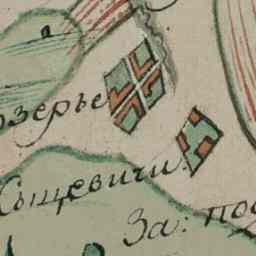 озерье
Сыцевичи.
За: под